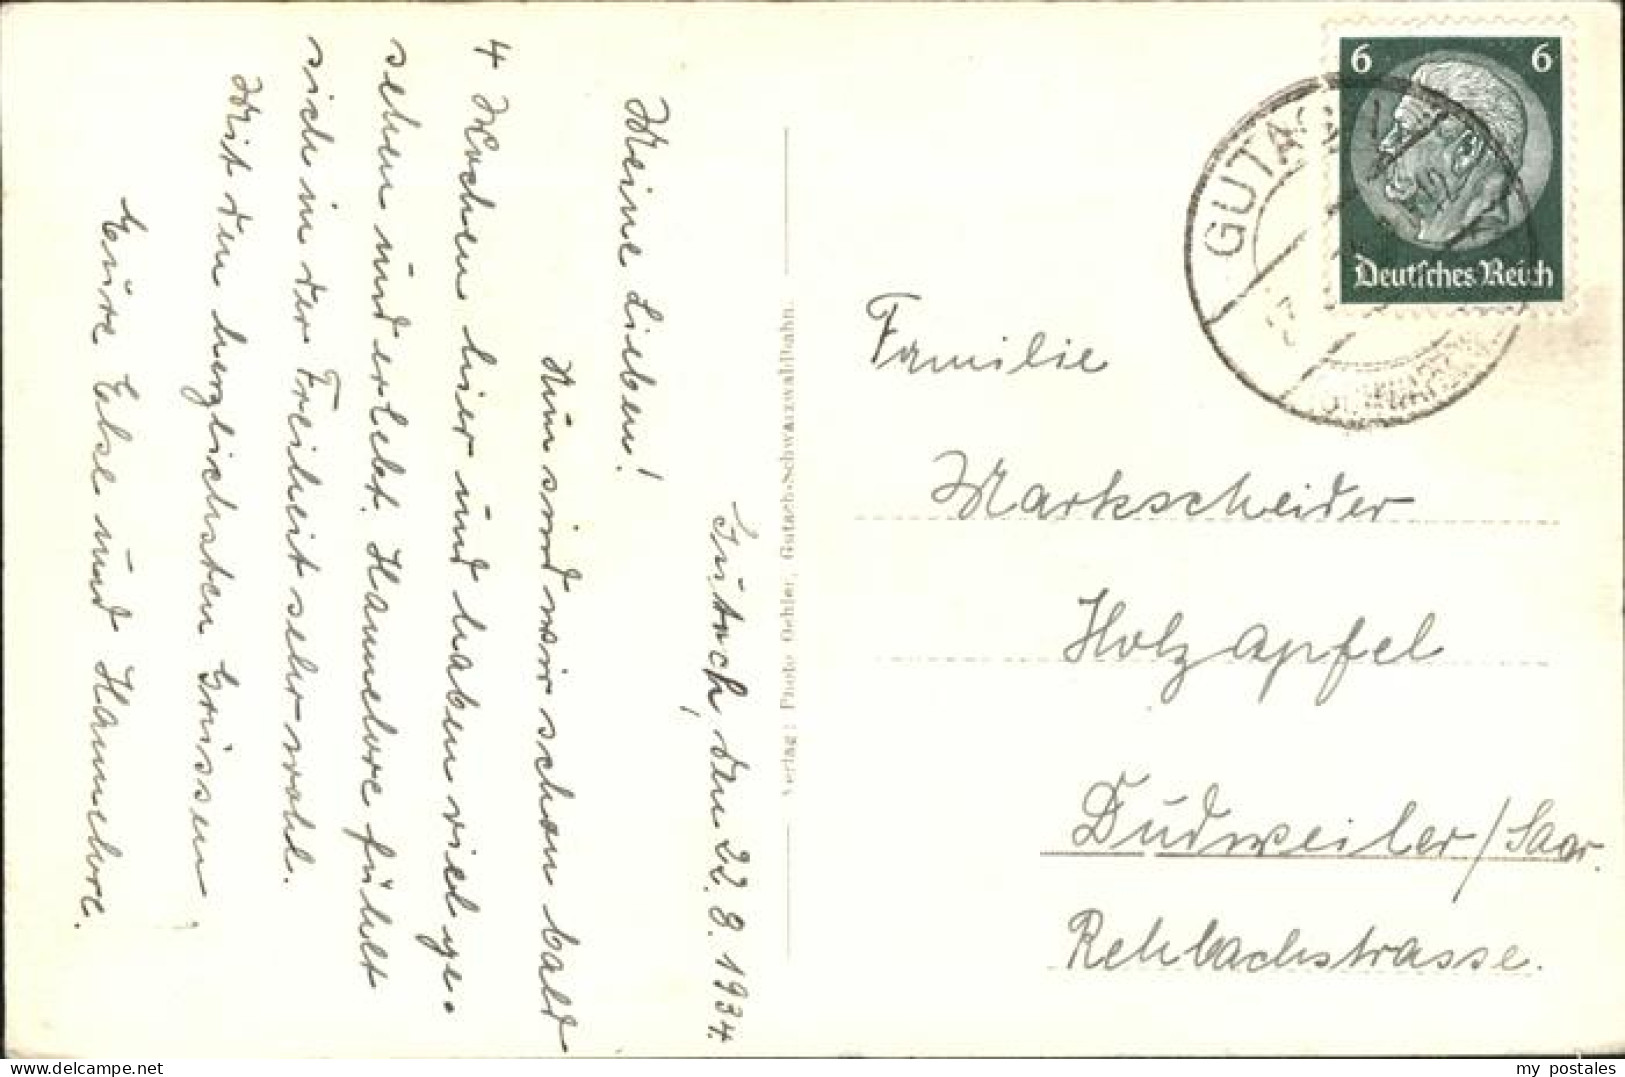 Gutach, den 22. 8. 1934.
Meine Lieben!
Nun sind wir schon bald
4 Wochen hier und haben viel ge-
sehen und erlebt. Hannelore fühlt
sich in der Freiheit sehr wohl.
Mit den herzlichsten Grüssen
Eure Else und Hannelore.
Verlag: Photo Gehler, Gutach-Schwarzwaldbahn.
6 6
Deutsches Reich
GUTACH
Familie
Markscheider
Holzapfel
Dudweiler/Saar.
Rehbachstrasse.
my_postales